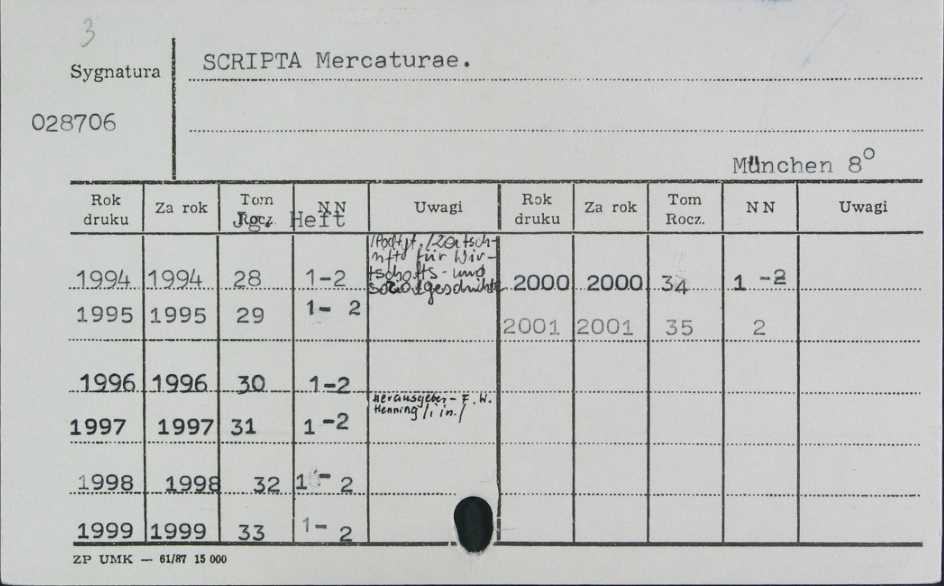 3
Sygnatura
SCRIPTA Mercaturae.
028706
München 8º
Rok druku | Za rok | Tom Rocz. Jg. | NN Heft | Uwagi | Rok druku | Za rok | Tom Rocz. | NN | Uwagi
/Podtyt./Zeitsch-
rift für Wir-
tschafts- und
Sozialgeschichte
1994 | 1994 | 28 | 1-2 | 2000 | 2000 | 34 | 1-2
1995 | 1995 | 29 | 1-2 | 2001 | 2001 | 35 | 2
1996 | 1996 | 30 | 1-2
Herausgeber - F. W.
Henning /i in./
1997 | 1997 | 31 | 1-2
1998 | 1998 | 32 | 1-2
1999 | 1999 | 33 | 1-2
ZP UMK — 61/87 15 000